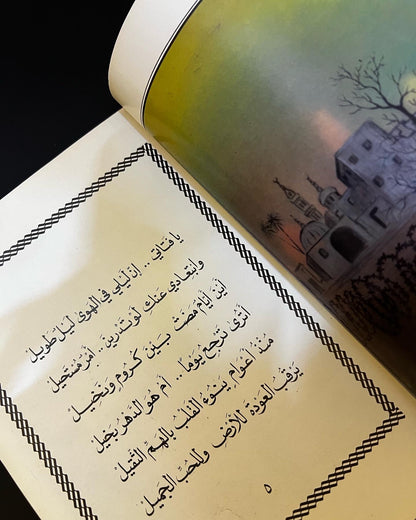 يا فتاتي .. إنّ ليلي في الهوى ليل طويل
وابتعادي عنك لو تدرين .. أمر مستحيل
أين أيام مضت بين كروم ونخيل
أترى ترجع يوماً .. أم هو الدهر بخيل
منذ أعوام ينوء القلب بالهم الثقيل
يرقب العودة للأرض وللحب الجميل
٥